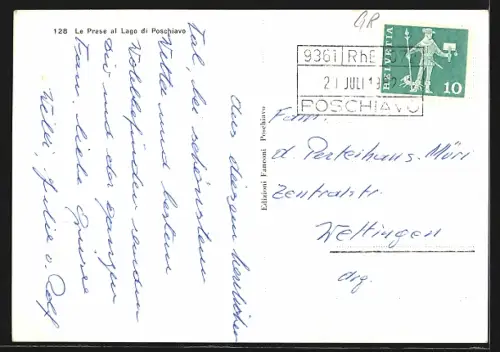 128 Le Prese al Lago di Poschiavo
GR
HELVETIA
10
9361 RhB
21 JULI 19
POSCHIAVO
Edizioni Fanconi Poschiavo
Aus diesem herrlichen
Tal, bei schönstem
Wetter und bestem
Wohlbefinden senden
Dir und der ganzen
Fam. liebe Grüsse
Willi, Julie u. Rolf
Fam.
Zentralstr.
Wettingen
Arg.